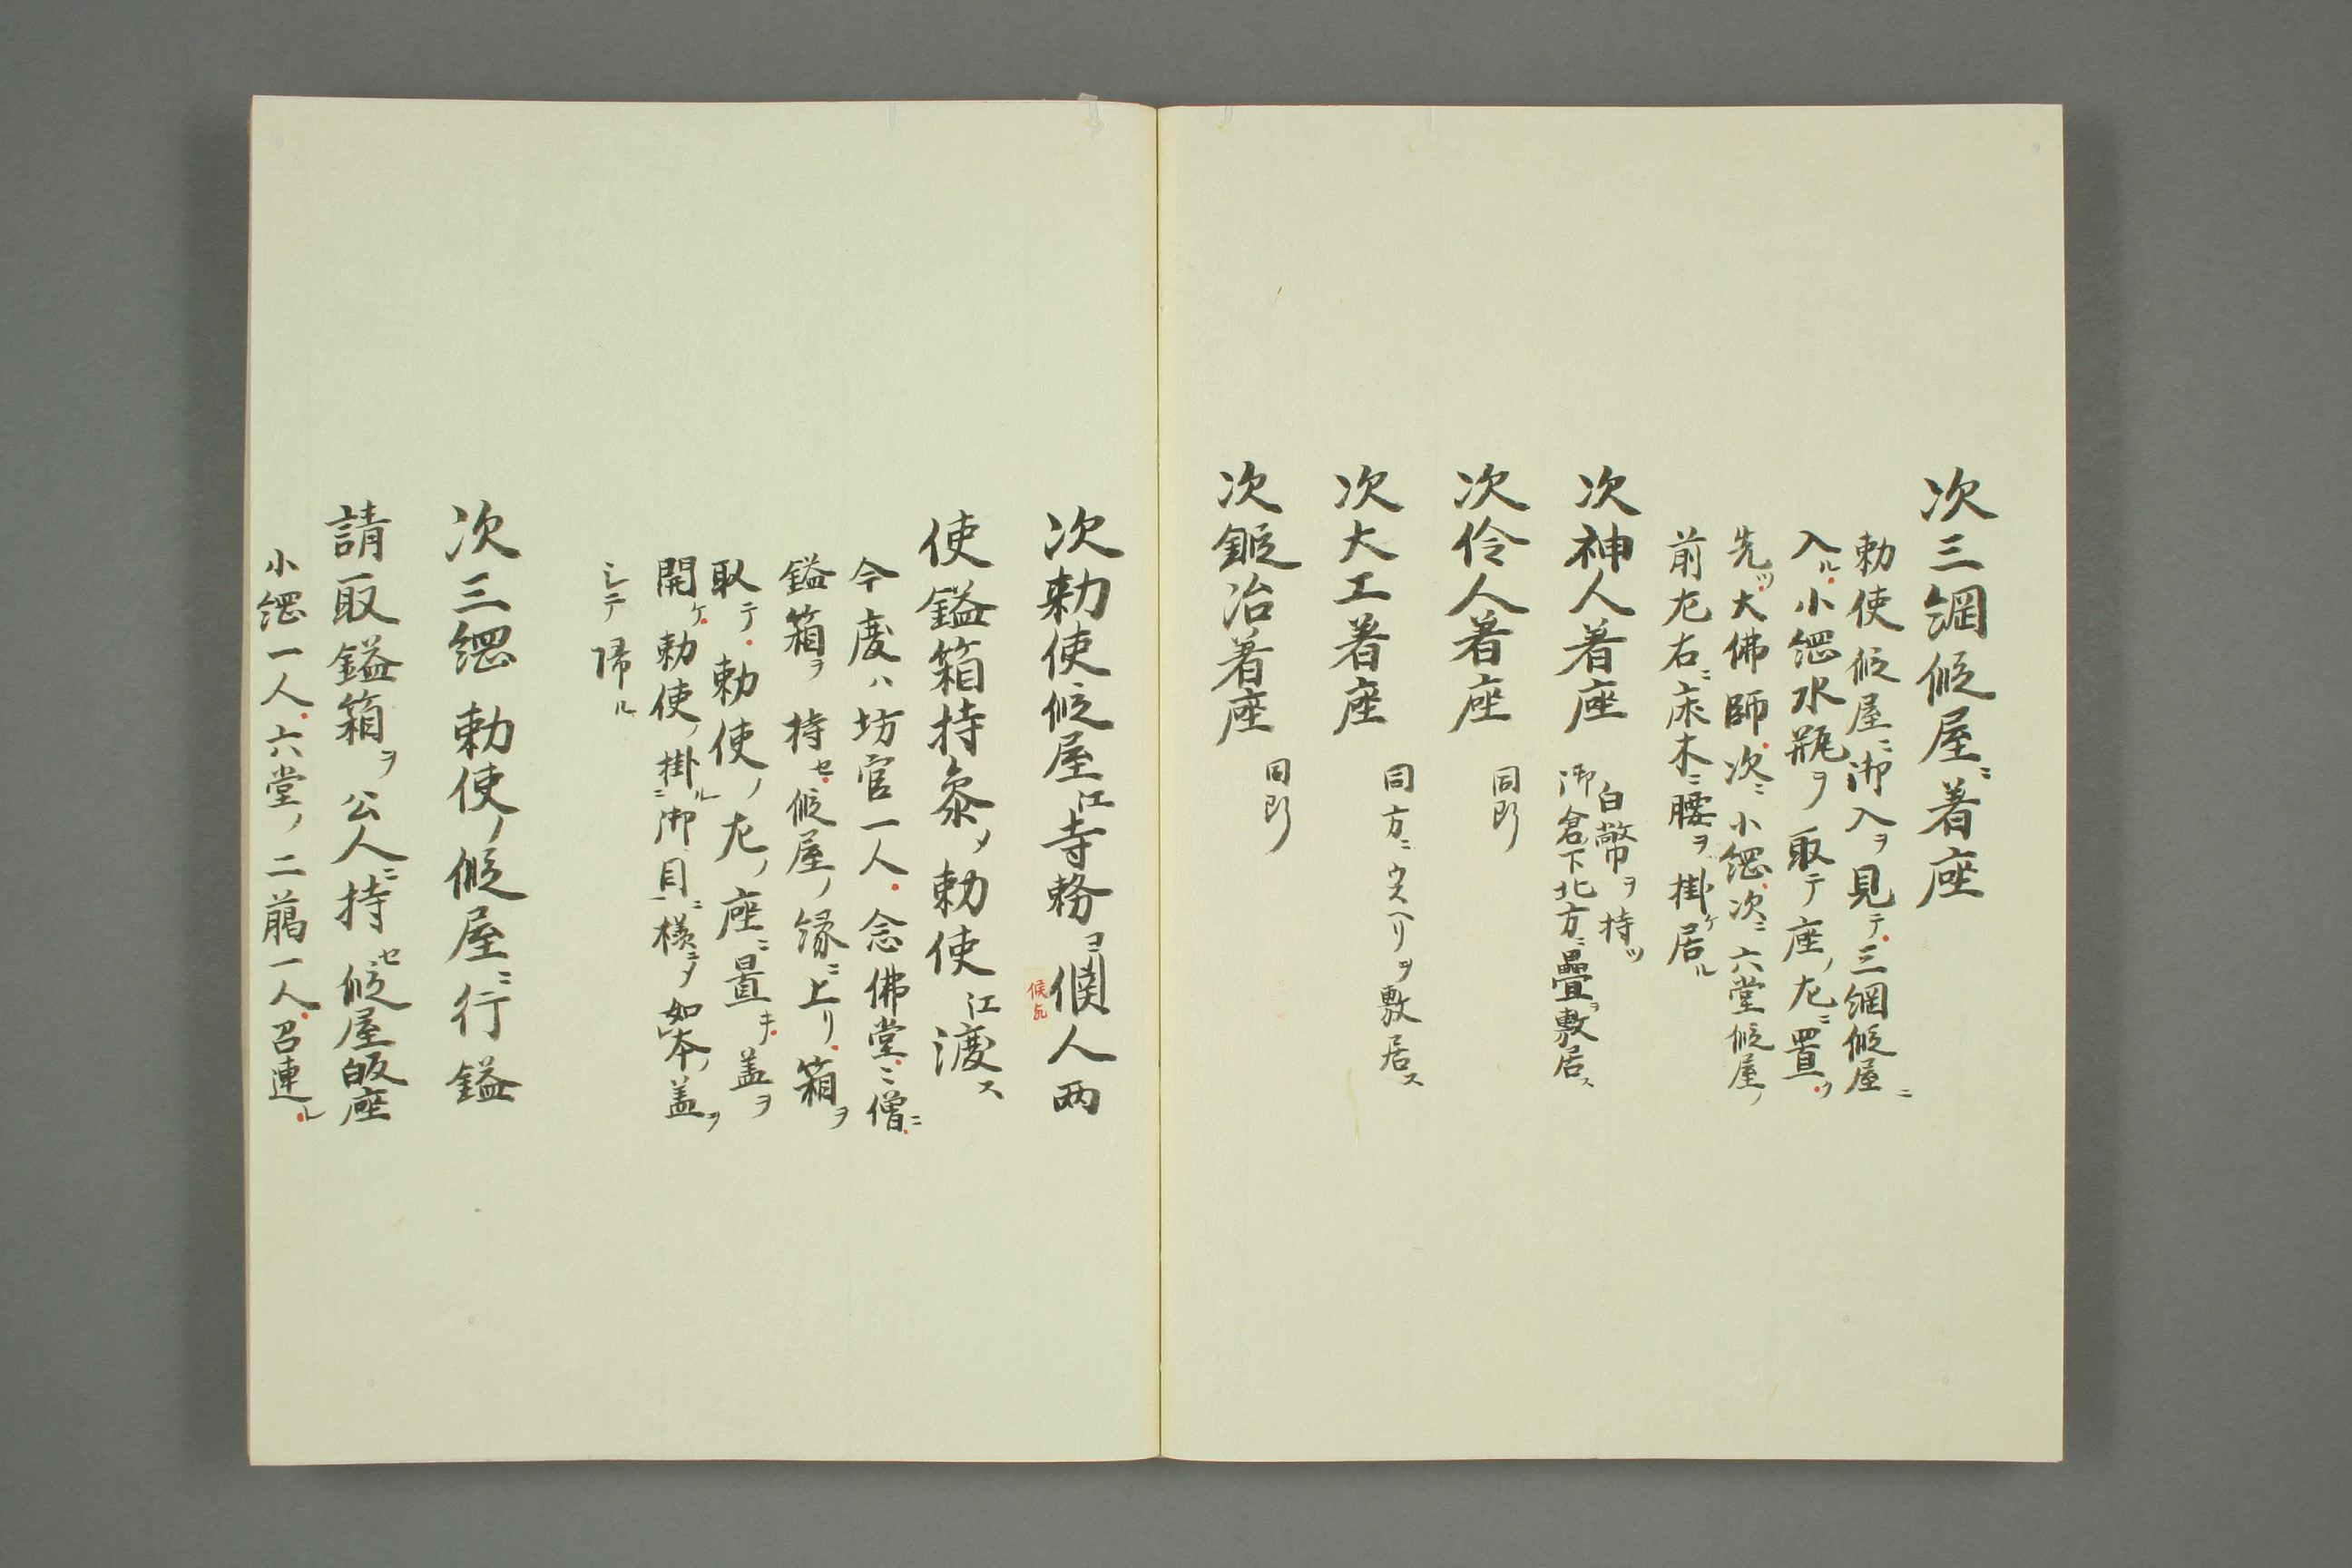 次三綱仮屋ニ着座
勅使仮屋ニ御入ヲ見テ三綱仮屋ニ
入ル小綱水瓶ヲ取テ座ノ左ニ置ク
先ツ大佛師次ニ小綱次ニ六堂仮屋ノ
前左右ニ床木ニ腰ヲ掛ケ居ル
次神人着座
白幣ヲ持ツ
御倉下北方ニ疊ヲ敷居ス
次伶人着座 同断
次大工着座 同方ニウスヘリヲ敷居ス
次鍛冶着座 同断
次勅使仮屋江寺務ヨリ候人両
候歟
使鎰箱持参ノ勅使江渡ス
今度ハ坊官一人念佛堂ニ僧ニ
鎰箱ヲ持セ仮屋ノ縁ニ上リ箱ヲ
取テ勅使ノ左ノ座ニ置キ盖ヲ
開ケ勅使ノ掛ル御目ニ様ニメ如本ノ盖ヲ
シテ帰ル
次三綱勅使ノ仮屋ニ行鎰
請取鎰箱ヲ公人ニ持セ仮屋皈座
小綱一人六堂ノ二﨟一人召連ル